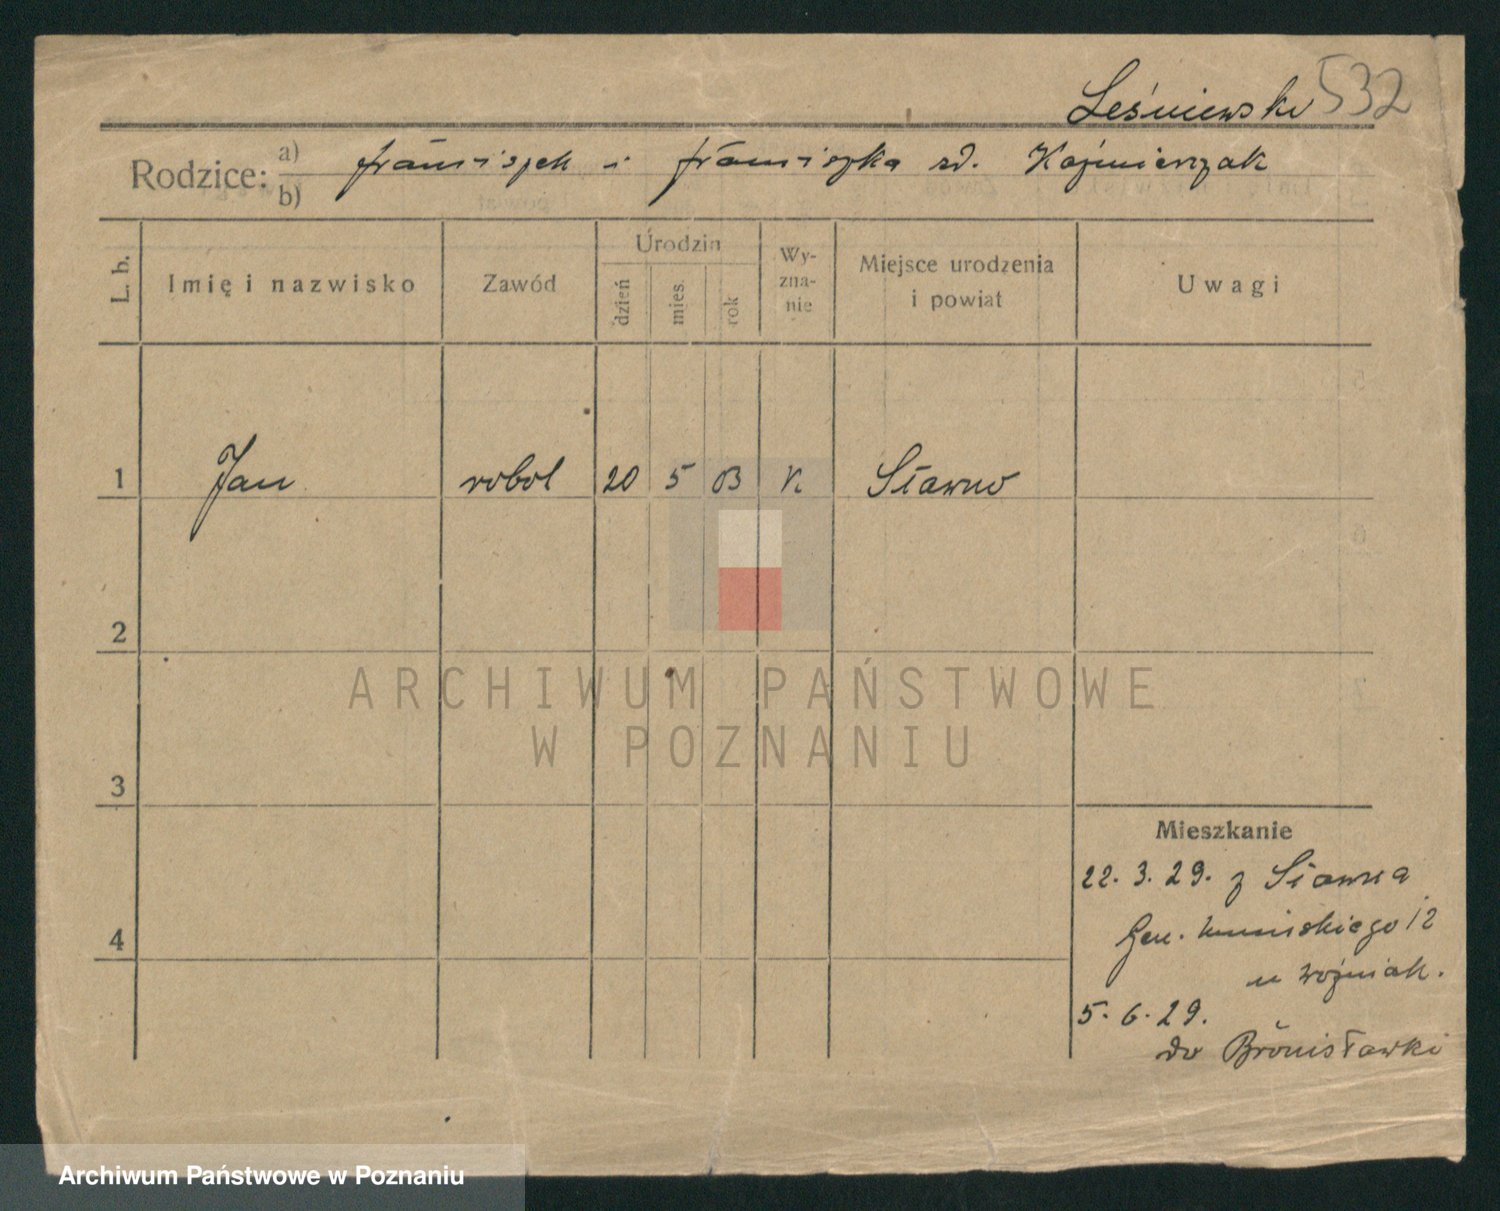 Leśniewski 532
Rodzice: a) b) Franciszek i Franciszka zd. Kaźmierczak
L. b. Imię i nazwisko Zawód Urodzin dzień mies. rok Wy-zna-nie Miejsce urodzenia i powiat Uwagi
1 Jan robot 20 5 03 K Sławno
2
ARCHIWUM PAŃSTWOWE
W POZNANIU
3
Mieszkanie
22. 3. 29. z Sławna
Gen. 12
4
u Woźniak.
5. 6. 29.
do Bronisławki
Archiwum Państwowe w Poznaniu